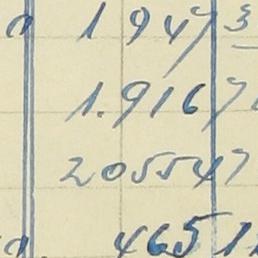 1947 3
1.9167
205547
4651